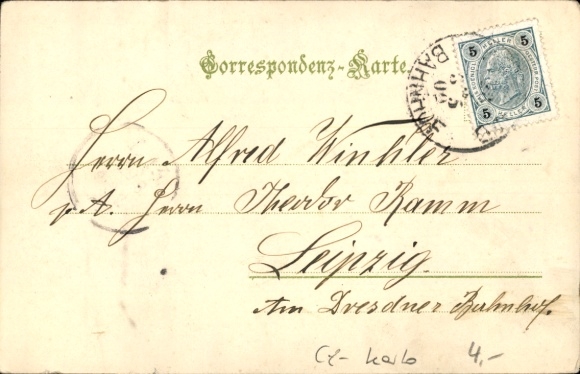 Correspondenz-Karte
5 HELLER 5
5 HELLER 5
BAHNHOF
Herrn Alfred Winkler
p. A. Herrn Theodor Ramm
Leipzig.
Am Dresdner Bahnhof.
4,-